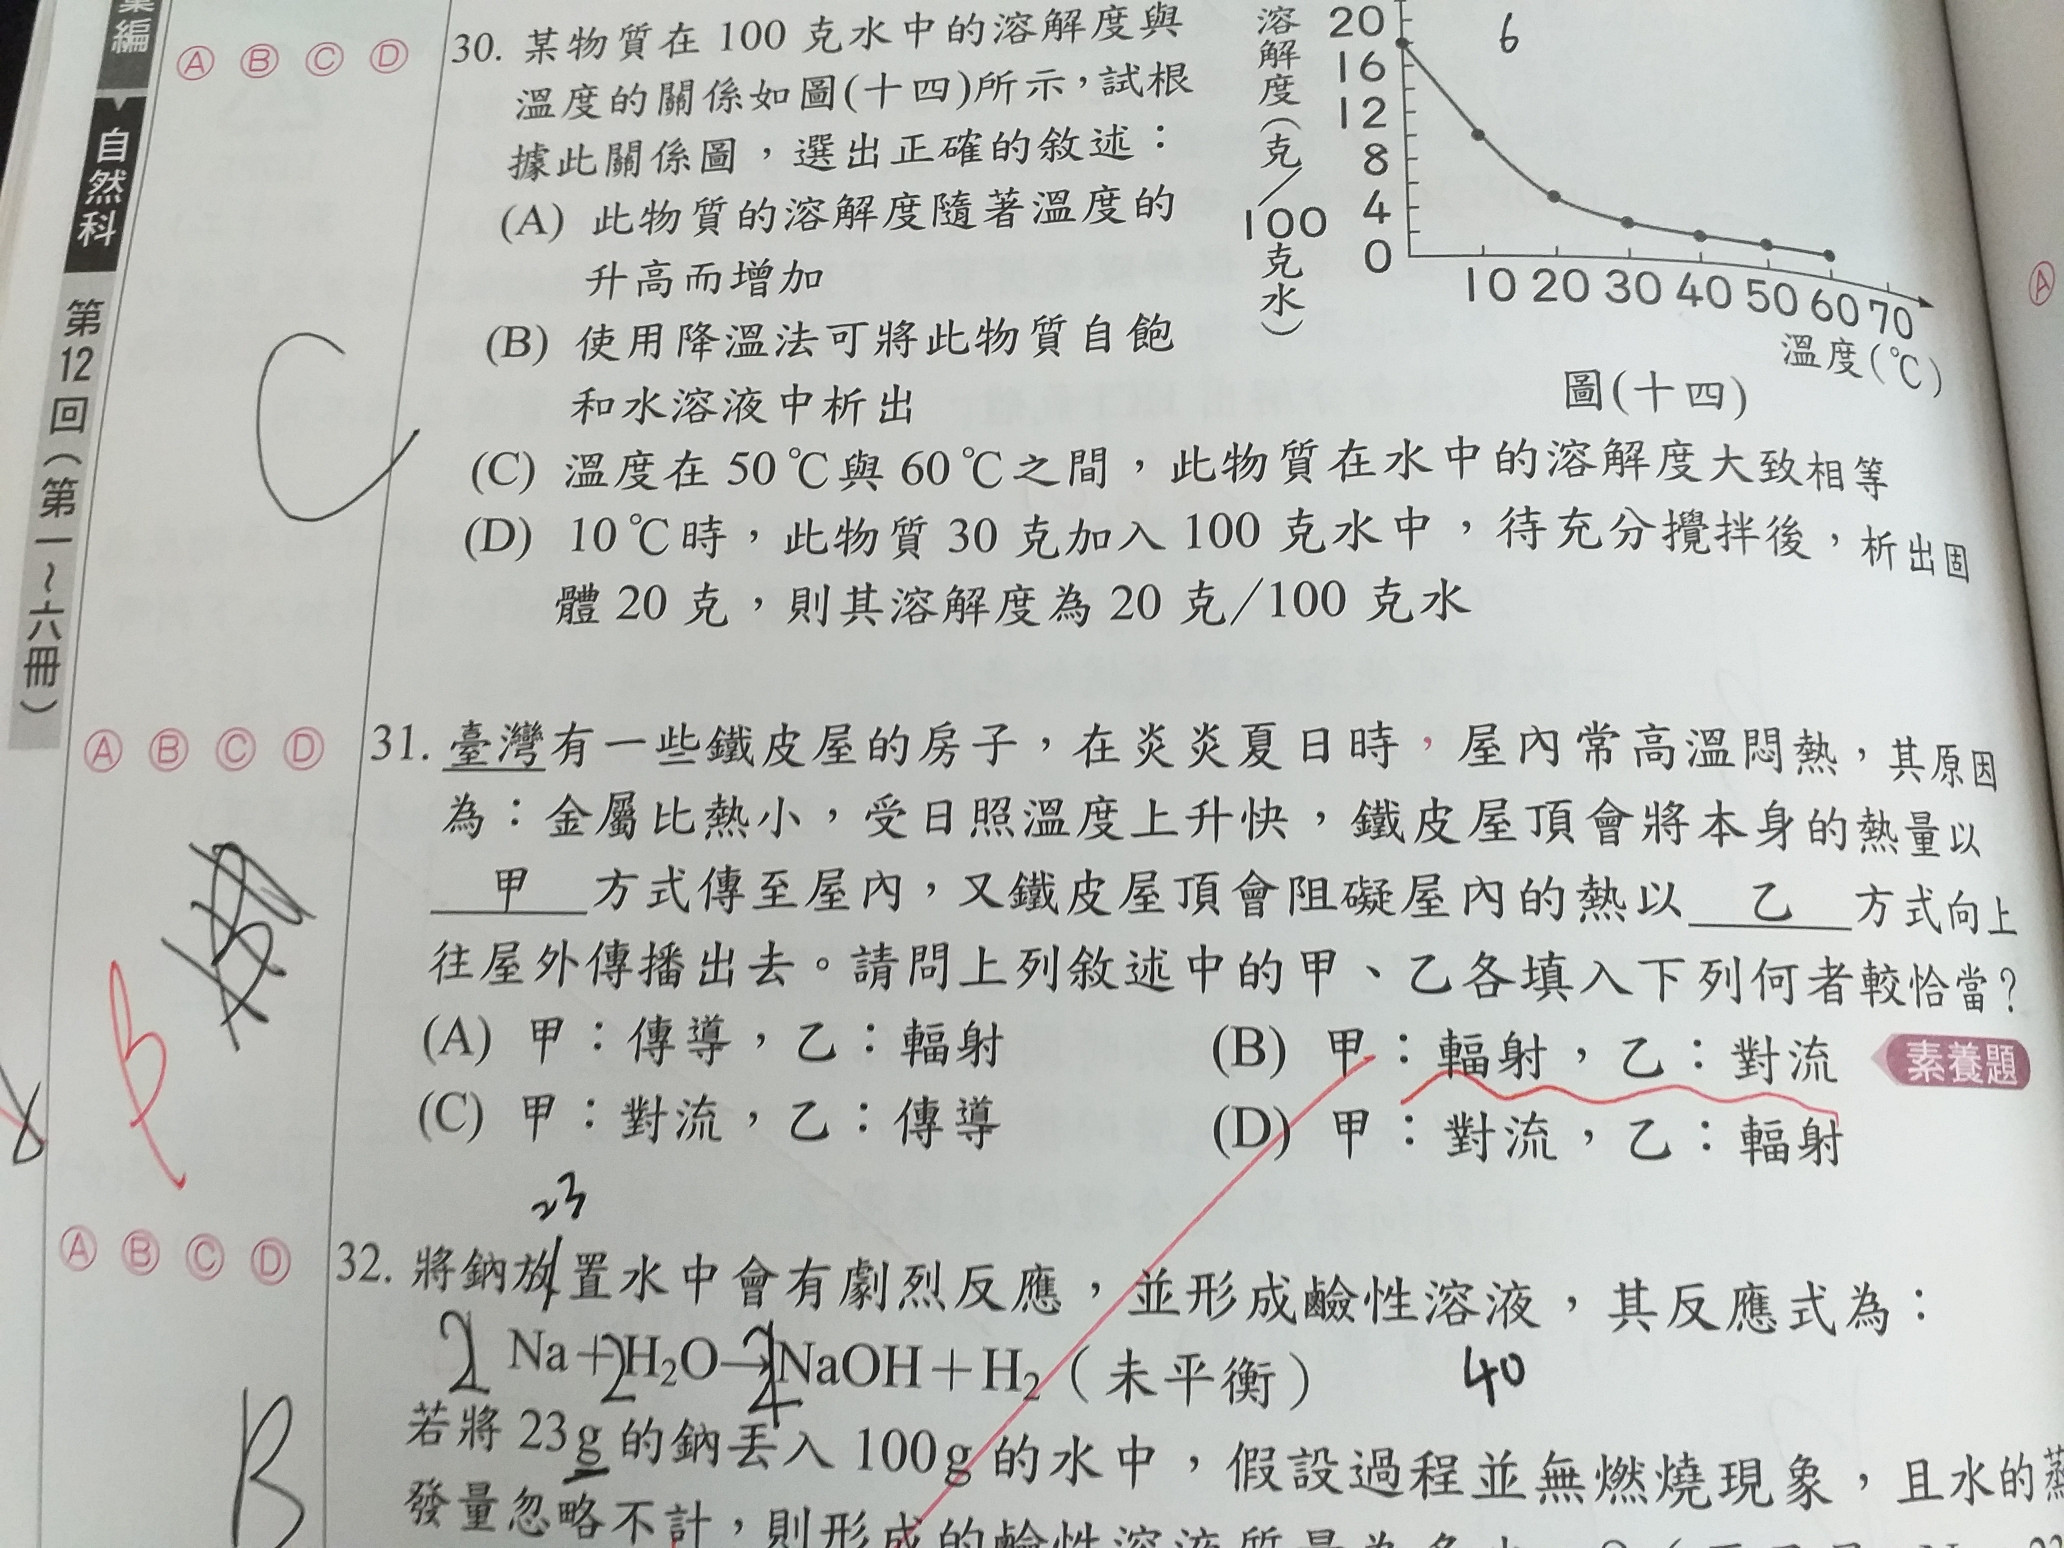 彙編
自然科
第12回(第一~六冊)
Ⓐ Ⓑ Ⓒ Ⓓ
C
30. 某物質在 100 克水中的溶解度與
溫度的關係如圖(十四)所示，試根
據此關係圖，選出正確的敘述：
(A) 此物質的溶解度隨著溫度的
升高而增加
(B) 使用降溫法可將此物質自飽
和水溶液中析出
(C) 溫度在 50℃與 60℃之間，此物質在水中的溶解度大致相等
(D) 10℃時，此物質 30 克加入 100 克水中，待充分攪拌後，析出固
體 20 克，則其溶解度為 20 克/100 克水
溶解度(克/100克水)
20
16
12
8
4
0
10 20 30 40 50 60 70
溫度(℃)
圖(十四)
6
Ⓐ
Ⓐ Ⓑ Ⓒ Ⓓ
B
31. 臺灣有一些鐵皮屋的房子，在炎炎夏日時，屋內常高溫悶熱，其原因
為：金屬比熱小，受日照溫度上升快，鐵皮屋頂會將本身的熱量以
甲 方式傳至屋內，又鐵皮屋頂會阻礙屋內的熱以 乙 方式向上
往屋外傳播出去。請問上列敘述中的甲、乙各填入下列何者較恰當？
(A) 甲：傳導，乙：輻射 (B) 甲：輻射，乙：對流 素養題
(C) 甲：對流，乙：傳導 (D) 甲：對流，乙：輻射
23
Ⓐ Ⓑ Ⓒ Ⓓ
B
32. 將鈉放置水中會有劇烈反應，並形成鹼性溶液，其反應式為：
2 Na+2H₂O→2NaOH+H₂（未平衡） 40
若將 23g 的鈉丟入 100g 的水中，假設過程並無燃燒現象，且水的蒸
發量忽略不計，則形成的鹼性溶液質量為多少